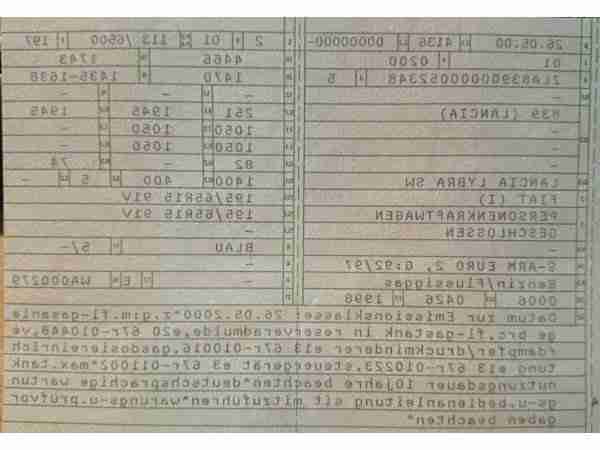 26.05.00 4136 00000000-
01 0200
ZLA83900000052348 5
-
839 (LANCIA)
-
-
LANCIA LYBRA SW
FIAT (I)
PERSONENKRAFTWAGEN
GESCHLOSSEN
-
S-ARM EURO 2, G:92/97
Benzin/Flüssiggas
0006 0426 1998
2 01 113/6500 197
4466 1743
1470 1435-1638
- - -
251 1945 1945
- 1050 1050
- 1050 1050
82 - 74
1400 400 5 -
195/65R15 91V
195/65R15 91V
-
-
BLAU 5/-
-
- WA000279
Datum zur Emissionsklasse: 26.05.2000*z.g:m.fl-gasanla
ge brc,fl-gastank in reserveradmulde,e20 67r-010448,ve
rdampfer/druckminderer e13 67r-010016,gasdosiereinrich
tung e13 67r-010223,steuergerät e3 67r-011002*max.tank
nutzungsdauer 10jahre beachten*deutschsprachige wartun
gs-u.bedienanleitung ist mitzuführen*wartungs-u.prüfvor
gaben beachten*